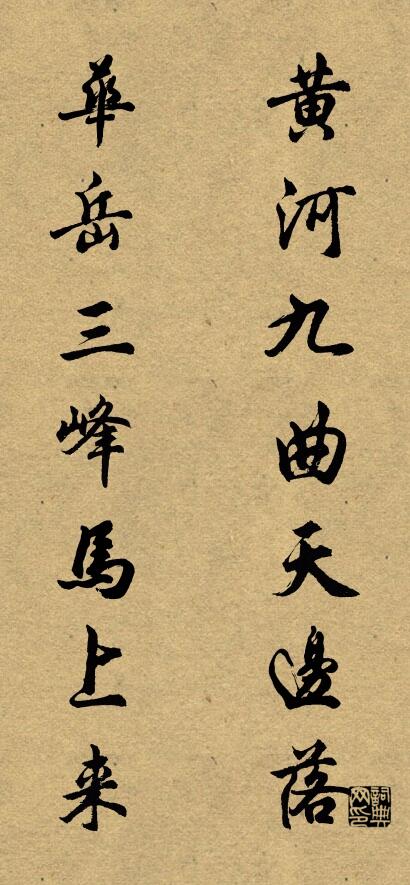 黄河九曲天邊落
華岳三峰馬上来
詞典网印